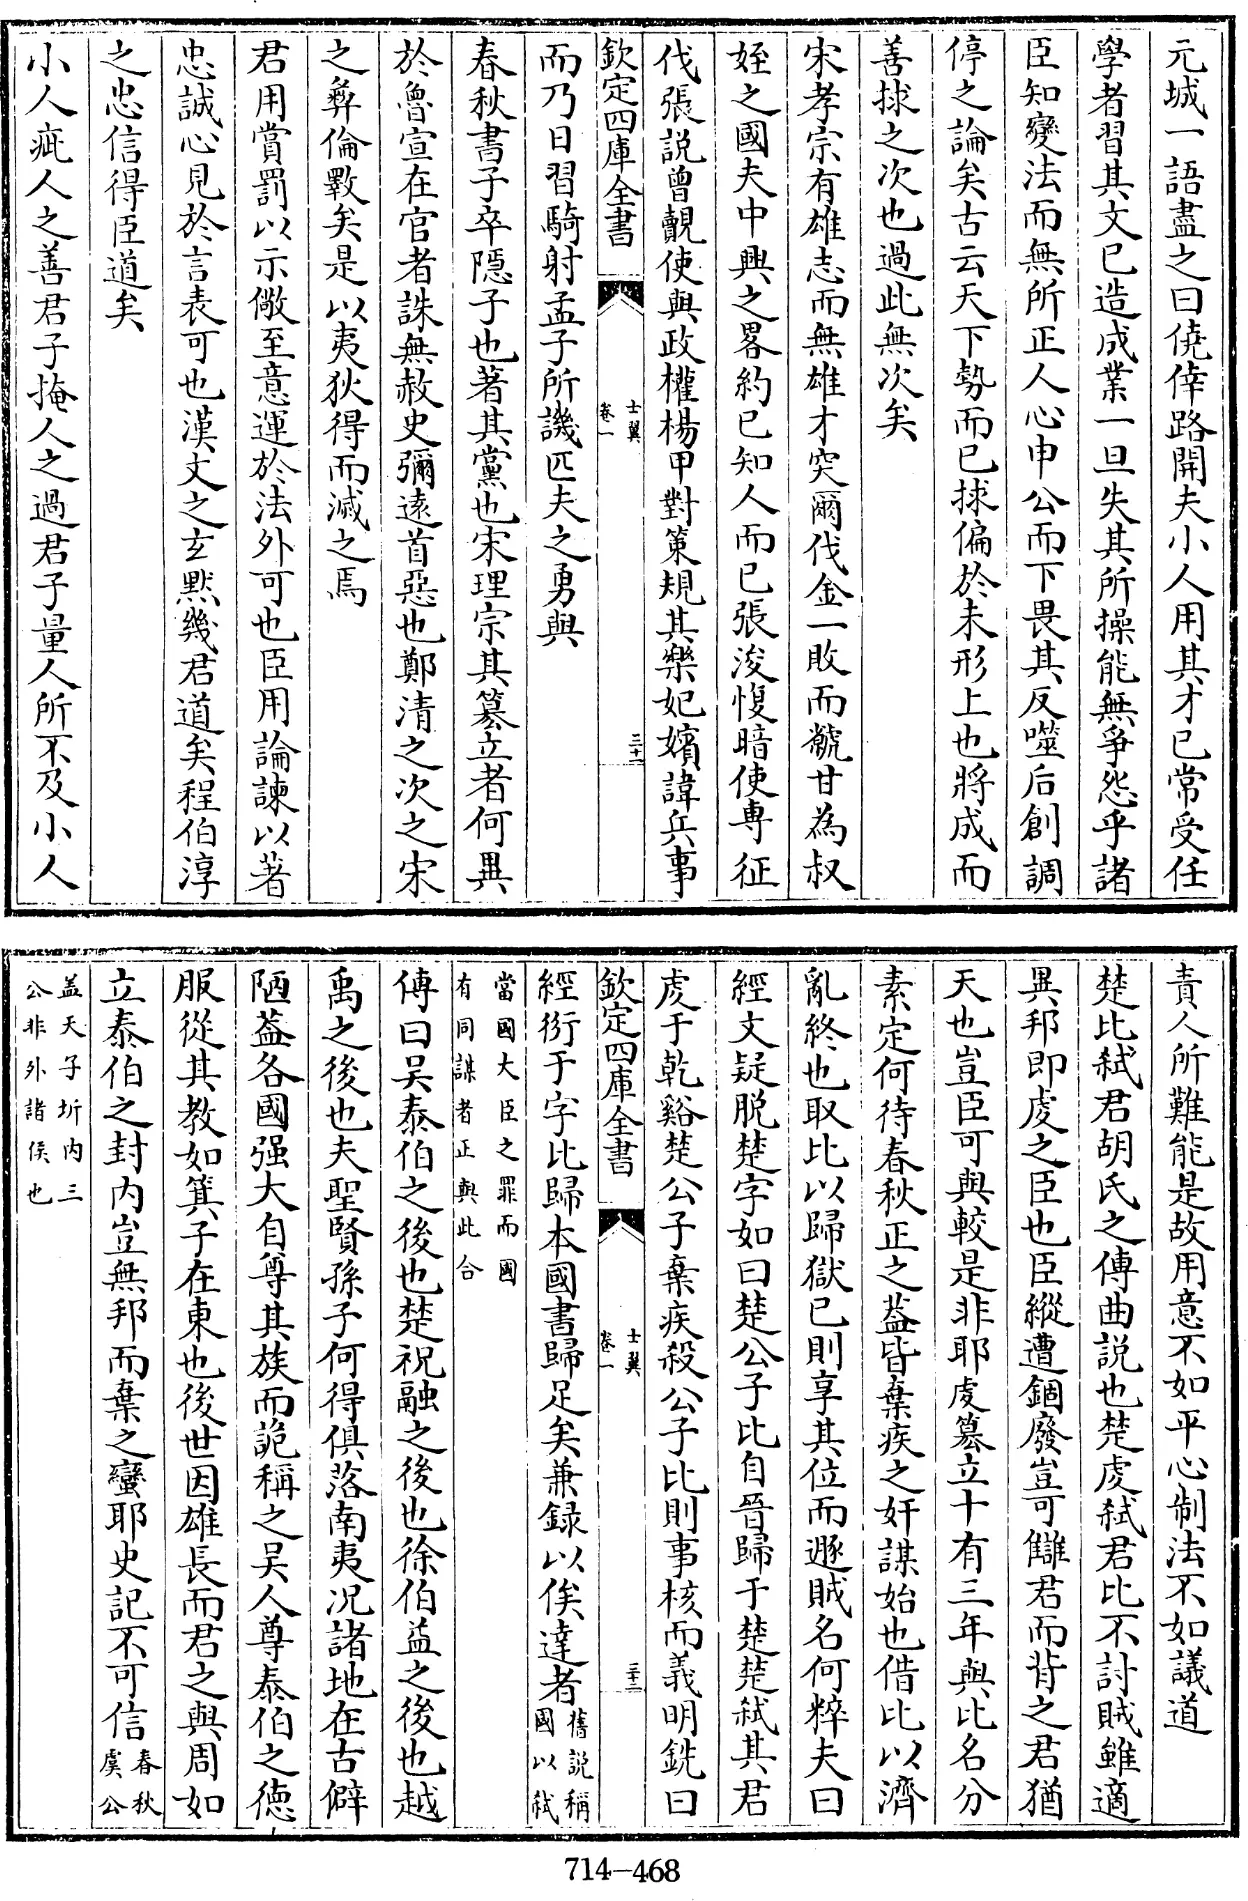 元城一語盡之曰僥倖路開夫小人用其才已常受任
學者習其文已造成業一旦失其所操能無爭怨乎諸
臣知變法而無所正人心申公而下畏其反噬后創調
停之論矣古云天下勢而已捄偏於未形上也將成而
善捄之次也過此無次矣
宋孝宗有雄志而無雄才突爾伐金一敗而虩甘為叔
姪之國夫中興之畧約已知人而已張浚愎暗使專征
伐張説曾覿使與政權楊甲對策規其樂妃嬪諱兵事
欽定四庫全書
士翼
卷一
三十一
而乃日習騎射孟子所譏匹夫之勇與
春秋書子卒隱子也著其黨也宋理宗其簒立者何異
於魯宣在官者誅無赦史彌遠首惡也鄭清之次之宋
之彛倫斁矣是以夷狄得而滅之焉
君用賞罰以示儆至意運於法外可也臣用論諫以著
忠誠心見於言表可也漢文之玄黙幾君道矣程伯淳
之忠信得臣道矣
小人疵人之善君子掩人之過君子量人所不及小人
責人所難能是故用意不如平心制法不如議道
楚比弑君胡氏之傳曲説也楚虔弑君比不討賊雖適
異邦即虔之臣也臣縱遭錮廢豈可讎君而背之君猶
天也豈臣可與較是非耶虔簒立十有三年與比名分
素定何待春秋正之葢皆棄疾之奸謀始也借比以濟
亂終也取比以歸獄已則享其位而遯賊名何粹夫曰
經文疑脱楚字如曰楚公子比自晉歸于楚楚弑其君
虔于乾谿楚公子棄疾殺公子比則事核而義明銑曰
欽定四庫全書
士翼
卷一
三十二
經衍于字比歸本國書歸足矣兼録以俟達者舊説稱國以弑
當國大臣之罪而國有同謀者正與此合
傳曰吴泰伯之後也楚祝融之後也徐伯益之後也越
禹之後也夫聖賢孫子何得俱落南夷况諸地在古僻
陋葢各國强大自尊其族而詭稱之吴人尊泰伯之德
服從其教如箕子在東也後世因雄長而君之與周如
立泰伯之封内豈無邦而棄之蠻耶史記不可信春秋虞公
盖天子圻内三公非外諸侯也
714—468